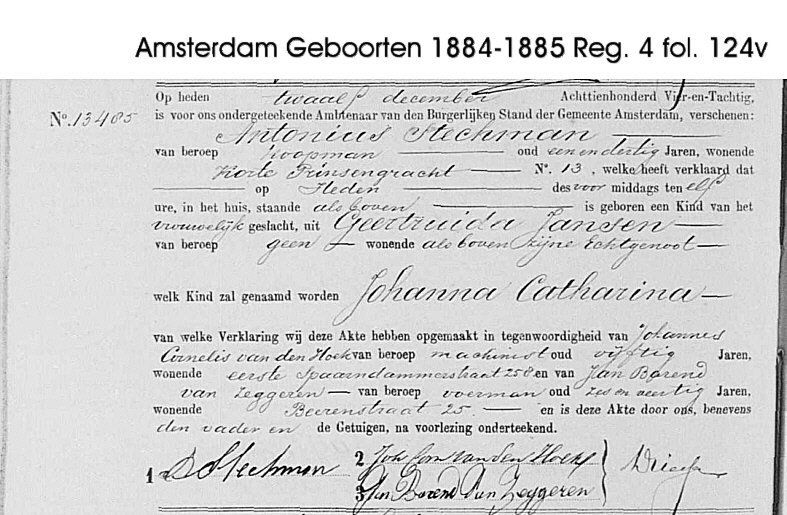 Amsterdam Geboorten 1884-1885 Reg. 4 fol. 124v
Op heden twaalf december Achttienhonderd Vier-en-Tachtig,
No. 13485 is voor ons ondergeteekende Ambtenaar van den Burgerlijken Stand der Gemeente Amsterdam, verschenen:
Antonius Stechman
van beroep koopman oud een en dertig Jaren, wonende
Korte Prinsengracht No. 13, welke heeft verklaard dat
op Heden des voor middags ten elf
ure, in het huis, staande als boven is geboren een Kind van het
vrouwelijk geslacht, uit Geertruida Jansen
van beroep geen wonende als boven zijne Echtgenoot
welk Kind zal genaamd worden Johanna Catharina
van welke Verklaring wij deze Akte hebben opgemaakt in tegenwoordigheid van Johannes
Cornelis van den Hoek van beroep machinist oud vijftig Jaren,
wonende eerste Spaarndammerstraat 258 en van Jan Barend
van Zeggeren van beroep voerman oud zes en veertig Jaren,
wonende Beerenstraat 25. en is deze Akte door ons, benevens
den vader en de Getuigen, na voorlezing onderteekend.
1 A Stechman 2 Joh Corn van den Hoek
3 Jan Barend van Zeggeren